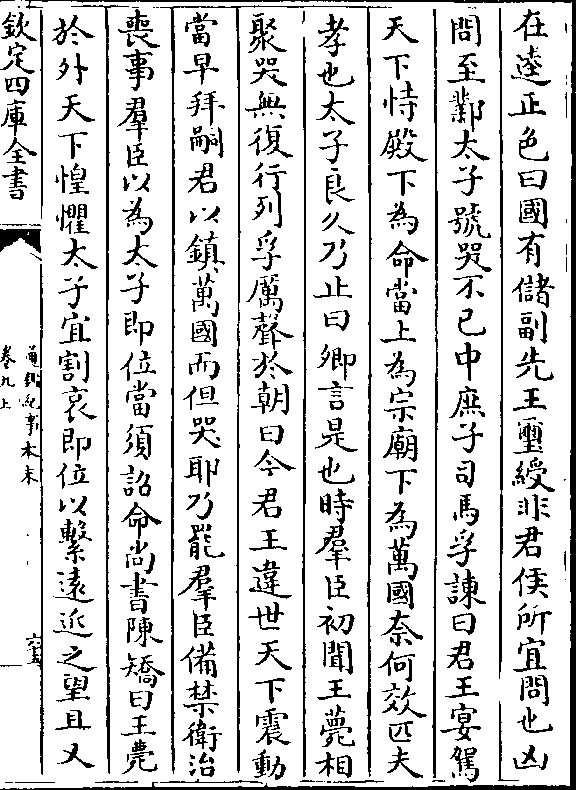 在逵正色曰國有儲副先王璽綬非君侯所宜問也凶
問至鄴太子號哭不已中庶子司馬孚諫曰君王宴駕
天下恃殿下為命當上為宗廟下為萬國奈何效匹夫
孝也太子良久乃止曰卿言是也時羣臣初聞王薨相
聚哭無復行列孚厲聲於朝曰今君王違世天下震動
當早拜嗣君以鎮萬國而但哭耶乃罷羣臣備禁衛治
喪事羣臣以為太子即位當須詔命尚書陳矯曰王薨
於外天下惶懼太子宜割哀即位以繫遠近之望且又
欽定四庫全書
通鑑紀事本末
卷九上
六五